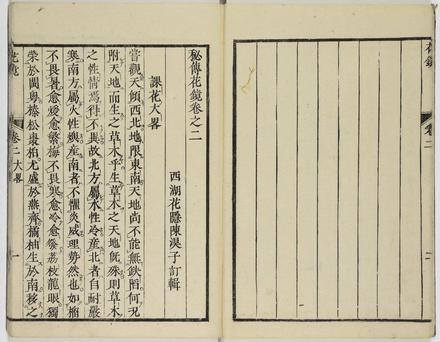 花鏡 卷二 二
秘傳花鏡卷之二
西湖花隱陳淏子訂輯
課花大畧
嘗觀天傾西北地限東南天地尚不能無缺陷何況
附天地而生之草木乎生草木之天地既殊則草木
之性情焉得不異故北方屬水性冷產北者自耐嚴
寒南方屬火性燠產南者不懼炎威理勢然也如榴
不畏暑愈煖愈繁梅不畏寒愈冷愈發荔枝龍眼獨
榮於閩粵榛松棗柏尤盛於燕齊橘柚生於南移之
花鏡 卷二大畧 一